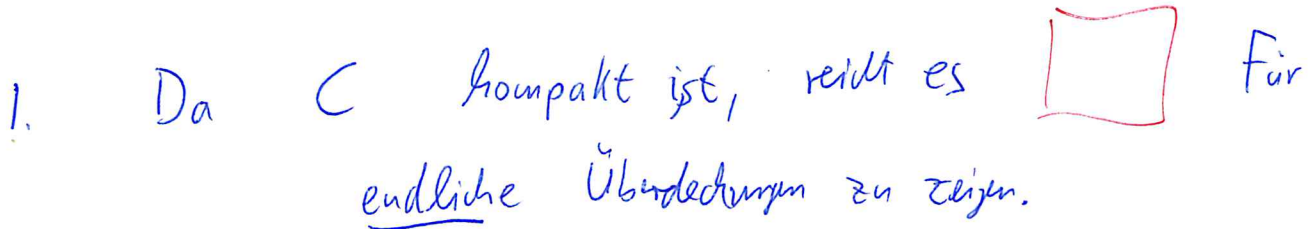 1. Da C kompakt ist, reicht es Für
endliche Überdeckungen zu zeigen.